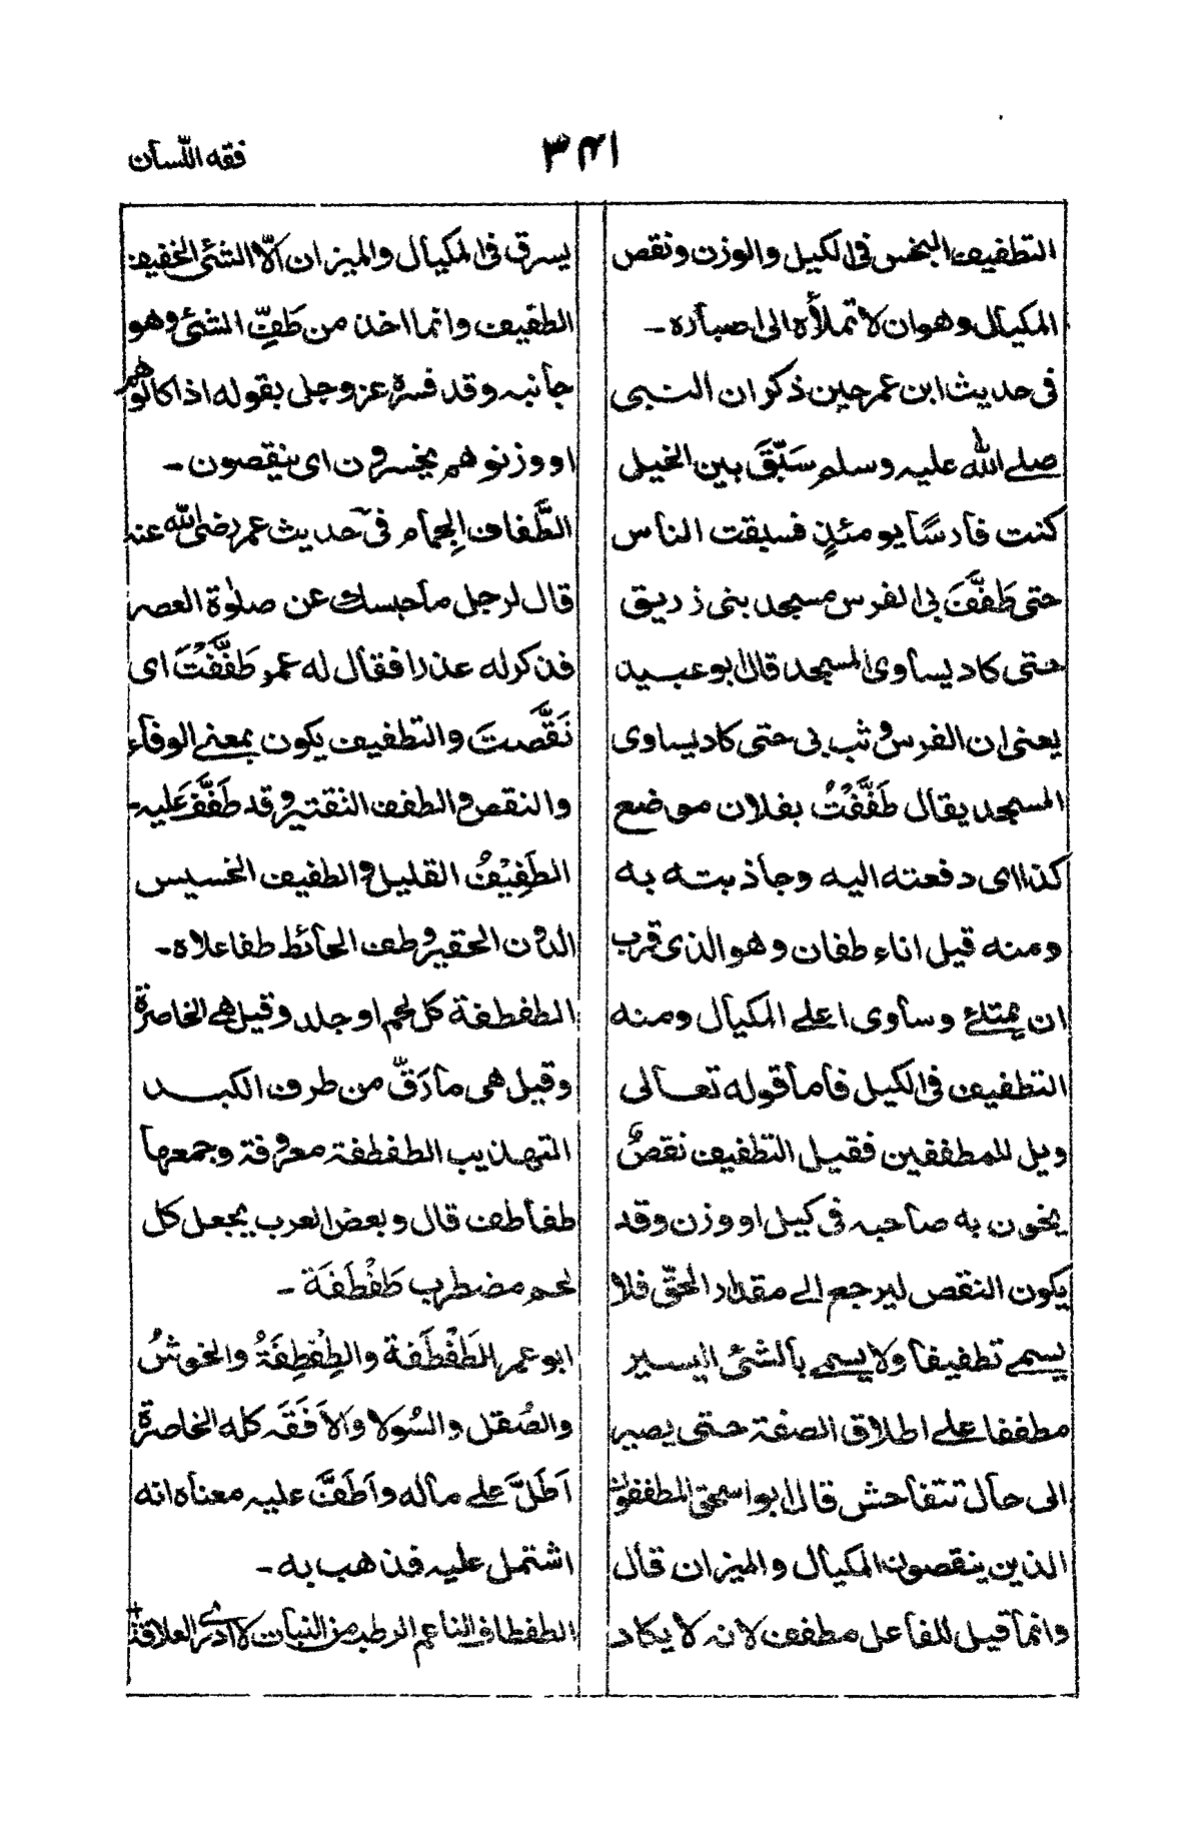 فقه اللسان
٣٤١
التطفيف البخس فى الكيل والوزن ونقص
المكيال وهو ان لا تملأه الى اصباره ـ
فى حديث ابن عمر حين ذكر ان النبى
صلے الله عليه وسلم سَبَّقَ بين الخيل
كنت فارسًا يومئذٍ فسبقت الناس
حتى طَفَّفَ بى الفرس مسجد بنى زريق
حتى كاد يساوى المسجد قال ابو عبيد
يعنى ان الفرس وثب بى حتى كاد يساوى
المسجد يقال طَفَّفْتُ بفلان موضع
كذا اى دفعته اليه وجاذبته به
ومنه قيل اناء طفان وهو الذى قرب
ان يمتلئ وساوى اعلے المكيال ومنه
التطفيف فى الكيل فاما قوله تعالى
ويل للمطففين فقيل التطفيف نقصٌ
يخون به صاحبه فى كيل او وزن وقد
يكون النقص ليرجع الے مقدار الحقّ فلا
يسمے تطفيفا ولا يسمے بالشئ اليسير
مطففا علے اطلاق الصفة حتى يصير
الى حال تتفاحش قال ابو اسحق المطففون
الذين ينقصون المكيال والميزان قال
وانما قيل للفاعل مطفف لانه لا يكاد
يسرق فى المكيال والميزان الّا الشئ الخفيف
الطفيف وانما اخذ من طَفِّ الشئ وهو
جانبه وقد فسره عز وجل بقوله اذا كالوهم
او وزنوهم يخسرون اى ينقصون ـ
الطَّفاف الجِمام فى حديث عمر رضى الله عنه
قال لرجل ما حبسك عن صلوٰة العصر
فذكر له عذرا فقال له عمر طَفَّفْتَ اى
نَقَّصتَ والتطفيف يكون بمعنے الوفاء
والنقص والطفف التقتير وقد طَفَّفَ عَليه ـ
الطَفِيْفُ القليل والطفيف الخسيس
الدون الحقير وطف الحائط طفا علاه ـ
الطفطفة كل لحم او جلد وقيل هے الخاصرة
وقيل هى ما رَقّ من طرف الكبد
التهذيب الطفطفة معروفة وجمعها
طفاطف قال وبعض العرب يجعل كل
لحم مضطرب طَفْطَفَة ـ
ابو عمر الطَفْطَفة والطِفْطِفَةُ والخوشُ
والصُقل والسُولا والاَفَقَه كله الخاصرة
اَطَلَّ علے ماله واَطَفَّ عليه معناه انه
اشتمل عليه فذهب به ـ
الطفطاف الناعم الرطب من النبات لا ادرى العلاقة